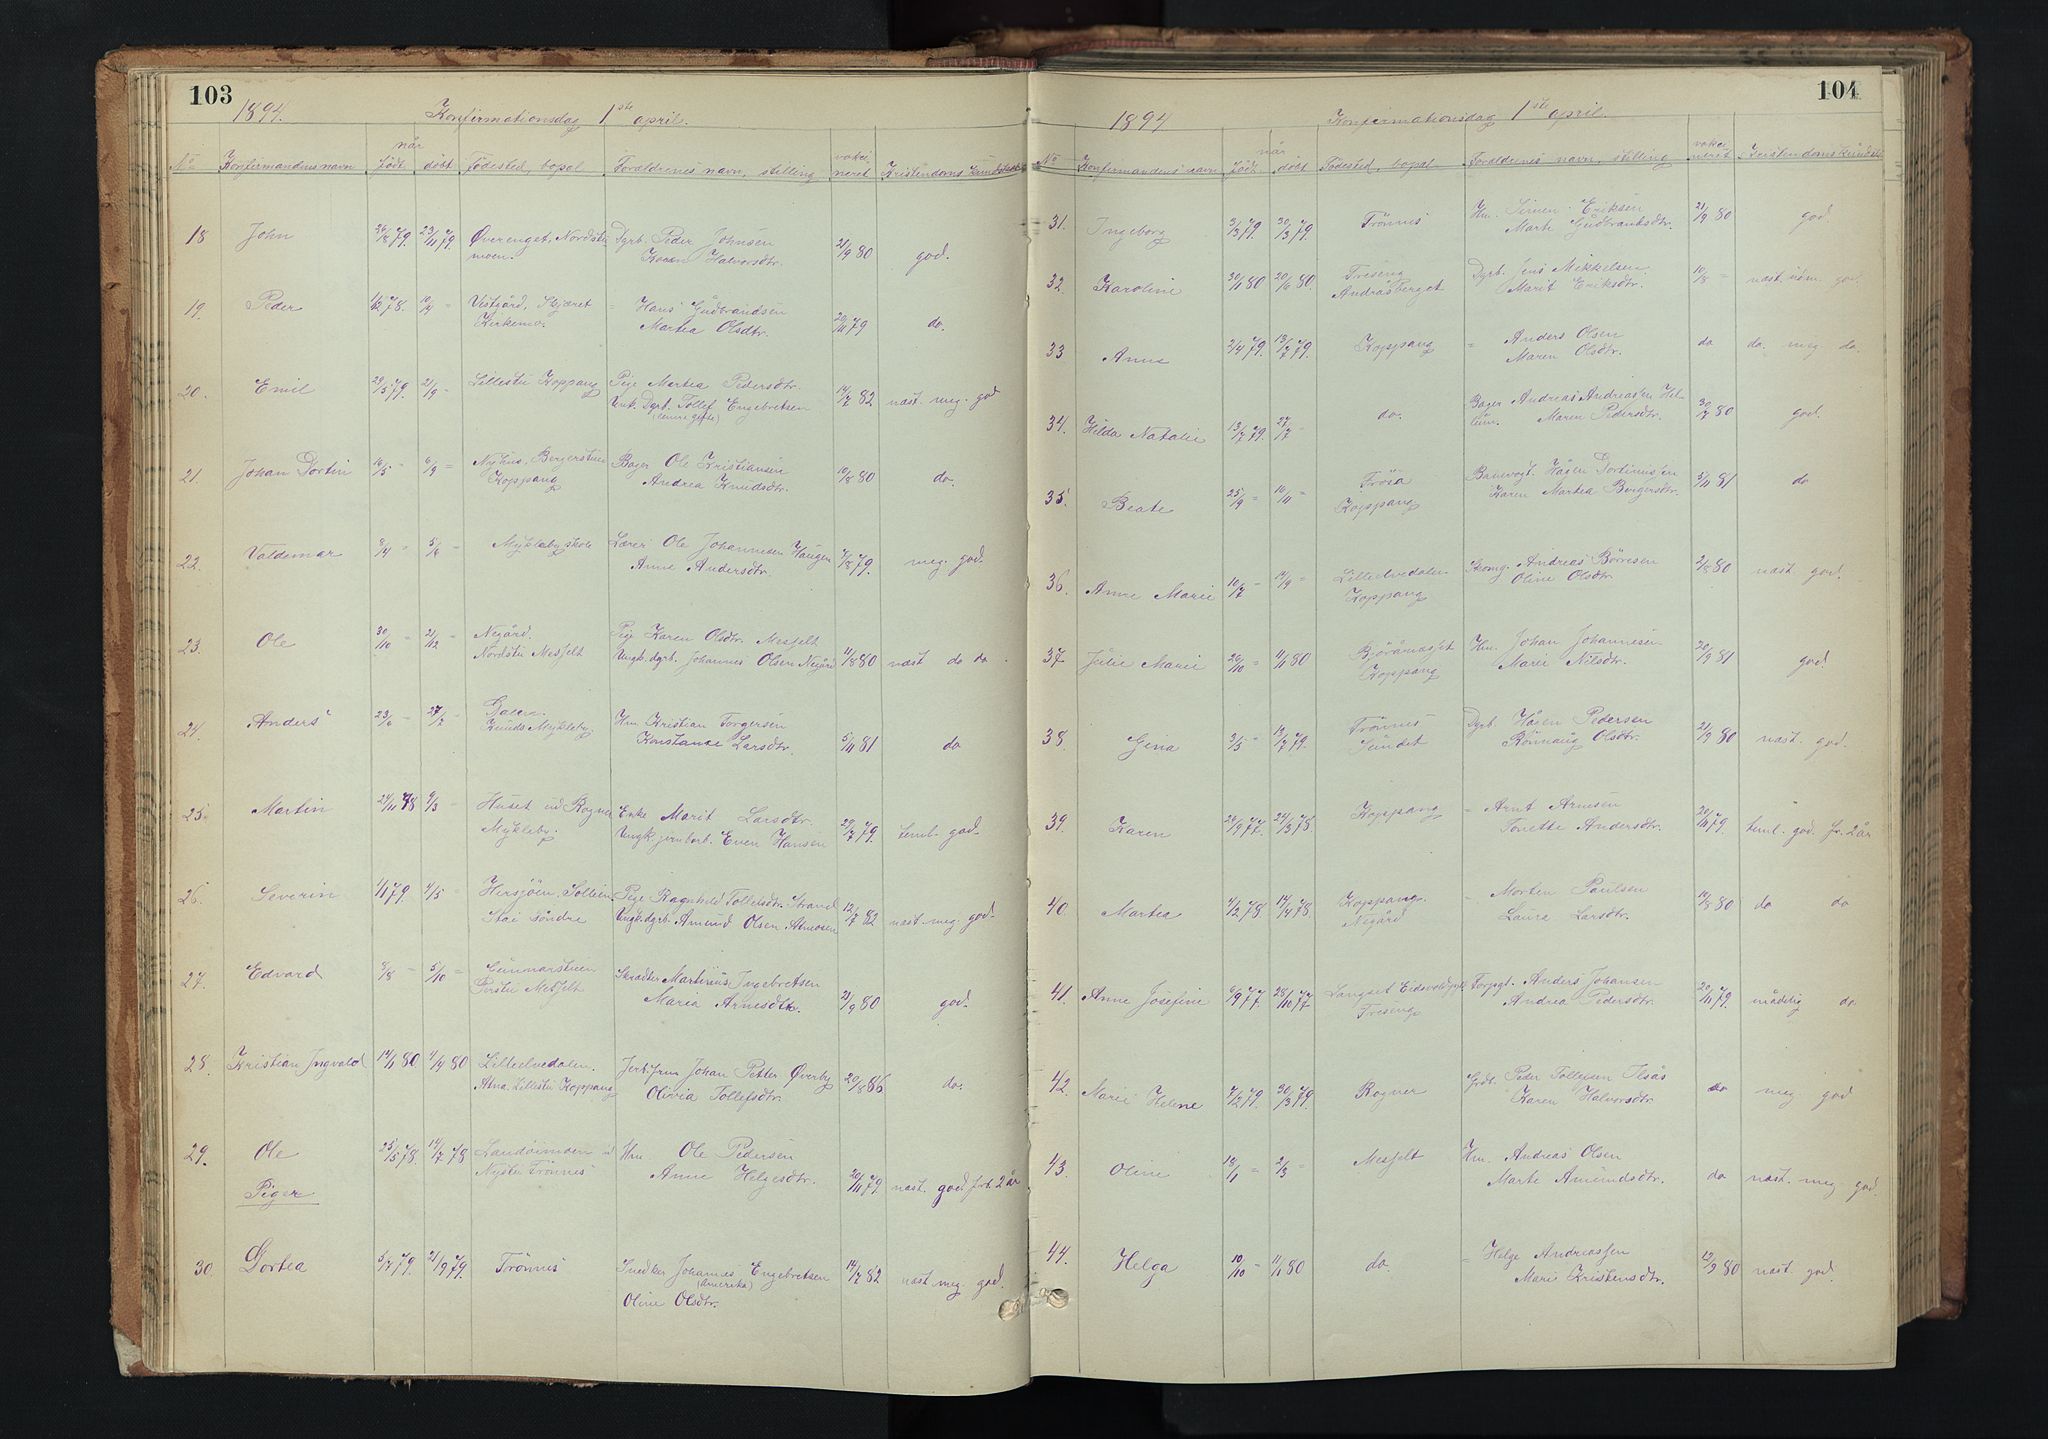 103
1894. Konfirmationsdag 1ste april.
No Konfirmandens navn når født døbt Fødested, bopal Foraldrenes navn, stilling vakci-neret Kristendoms kundskab
18 John 26/8 79. 23/11 79. Øverenget, Nordstu Dgrb. Peder Johnsen 21/9 80 god.
moen. Karen Halvorsdtr.
19. Peder 78. = Vestgård, Skjæret = Hans Gudbrandsen 20/11 79 do.
Kirkemo. Martea Olsdtr.
20. Emil 29/5 79. 21/9 = Lillestu Koppang Pige Martea Pedersdtr. 14/7 82 nast. meg. god
Unk. Dgrb. Tollef Engebretsen
21. Johan Dortin 16/5 = 6/9 = Nyhus, Bergerstuen Bager Ole Kristiansen 10/8 80 do.
Koppang Andrea Knudsdtr.
22. Valdemar 8/4 = 5/6 = Mykleby skole Lærer Ole Johannesen Haugen 79. meg. god.
Anne Andersdtr.
23. Ole 30/10 = 21/12 = Negård. Pige Karen Olsdtr. Mesjelt 11/8 80 nast do do.
Nordstu Mesjelt Ungk. dgrb. Johannes Olsen Negård
24. Anders 23/6 = 27/7 = Knuds Mykleby Hm Kristian Torgersen 5/11 81 do
Konstanse Larsdtr.
25. Martin 24/11 78 9/3 = Huset ud Rogne Enke Marit Larsdtr. 29/7 79. teml. god.
Mykleby. Ungk. jernbarb. Even Hansen
26. Severin 1/1 79. 4/5 = Hersjøen, Sollien Pige Ragnhild Tollefsdtr. Strand 12/7 82 nast. meg god.
Stai søndre Ungk. dgrb. Amund Olsen Atneosen
27. Edvard 8/8 = 5/10 = Gunnarstuen Skradder Martinus Ingebretsen 21/9 80 god.
Perstu Mesjelt Maria Arnesdtr.
28. Kristian Ingvald 14/1 80 4/4 80 Lilleelvedalen. Johan Petter Øverby 20/8 86 do.
Atna. Lillestu Koppang Olivia Tollefsdtr.
29. Ole 25/5 78. 14/7 78 Landøimoen Hm Ole Pedersen 20/11 79 nast. god. frb. 2 år
Nystu Trönnes Anne Helgesdtr.
Piger
30. Dortea 5/7 79. 21/9 79. Trönnes Snedker Johannes Engebretsen 14/7 82 nast meg. god.
(Amerika)
Oline Olsdtr.
104
1894 Konfirmationsdag 1ste april.
No Konfirmandens navn når født døbt Fødested, bopal Foraldrenes navn, stilling vakci-neret Kristendoms kundsk.
31. Ingeborg 3/3 79. 30/3 79. Trönnes Hm. Simen Eriksen 21/9 80 god.
Marte Gudbrandsdtr.
32. Karoline 30/1 80 20/6 80. Treseng Dgrb. Jens Mikkelsen. 10/8 = nast. god.
Andråsberget Marit Eriksdtr.
33 Anne 2/4 79. 13/7 79. Koppang = Anders Olsen do do. meg. do.
Maren Olsdtr.
34. Hilda Natalie 13/7 79. 27/7 = do. Bager Andreas Andreasen Hel- 30/7 80 god.
lum. Maren Pedersdtr.
35. Beate 25/9 = 16/11 = Frösa Banevogt. Hågen Dortinussen 5/11 81 do
Koppang Karen Martea Bergersdtr.
36. Anne Marie 10/7 = 14/9 = Lilleelvedalen Skomg. Andreas Börresen 2/8 80 nast god.
Koppang Oline Olsdtr.
37. Julie Marie 26/10 = 11/1 80 Björåmasset Hm. Johan Johannesen 20/9 81 god.
Koppang Marie Nilsdtr.
38. Gina 3/5 = 13/7 79. Trönnes Dgrb Hågen Pedersen 21/9 80 nast. god.
Sundet Rönnaug Olsdtr.
39. Karen 26/9 77. 24/3 78 Koppang = Arnt Arnesen 20/11 79. teml. god. fr. 2 år
Tonette Andersdtr.
40. Martea 4/2 78 14/4 78. Koppang. = Morten Paulsen 14/8 80 do do
Negård Laura Larsdtr.
41. Anne Josefine 6/9 77. 28/10 77 Langset Eidsvold Forpgt. Anders Johansen 20/11 79. mådelig do
Treseng Andrea Pedersdtr.
42. Marie Helene 7/2 79. 30/3 79. Rogner Grdb. Peder Tollefsen Ilsås do meg god
Karen Halvorsdtr
43. Oline 18/1 = 2/3 = Mesjelt Hm. Andreas Olsen do nast. meg god.
Marte Amundsdtr.
44. Helga 10/10 = 11/1 80 do. = Helge Andreassen 12/9 80 nast god.
Mari Kristensdtr.